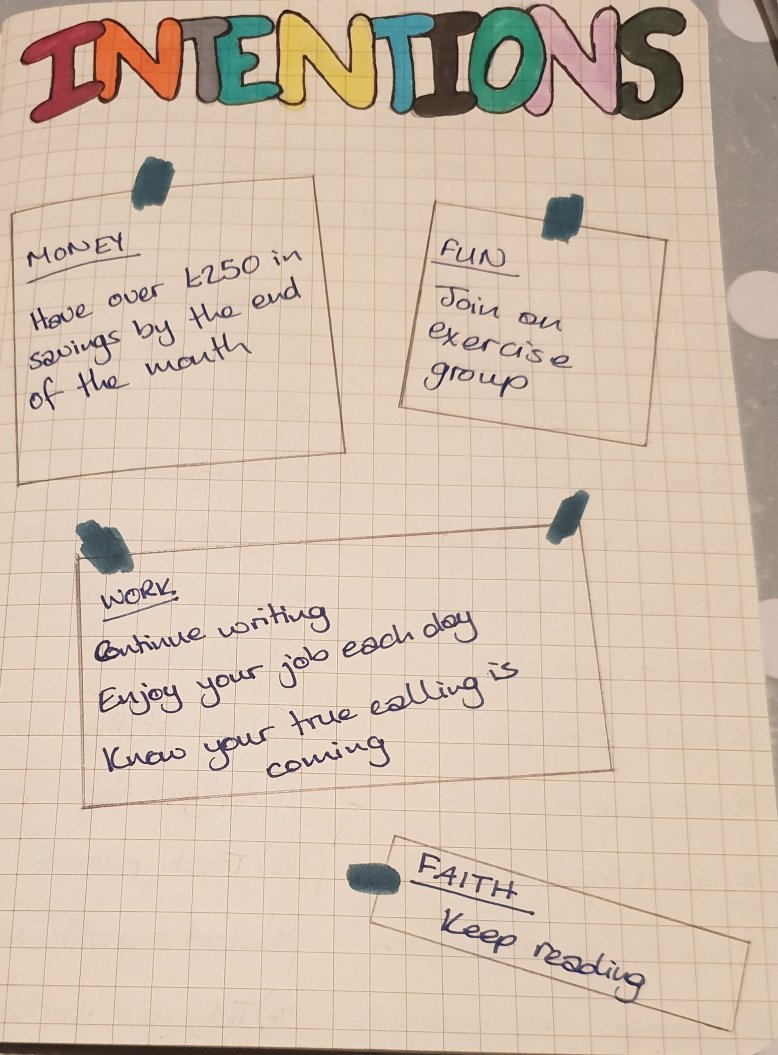 INTENTIONS
MONEY
Have over £250 in
savings by the end
of the month
FUN
Join an
exercise
group
WORK
Continue writing
Enjoy your job each day
Know your true calling is
coming
FAITH
Keep reading